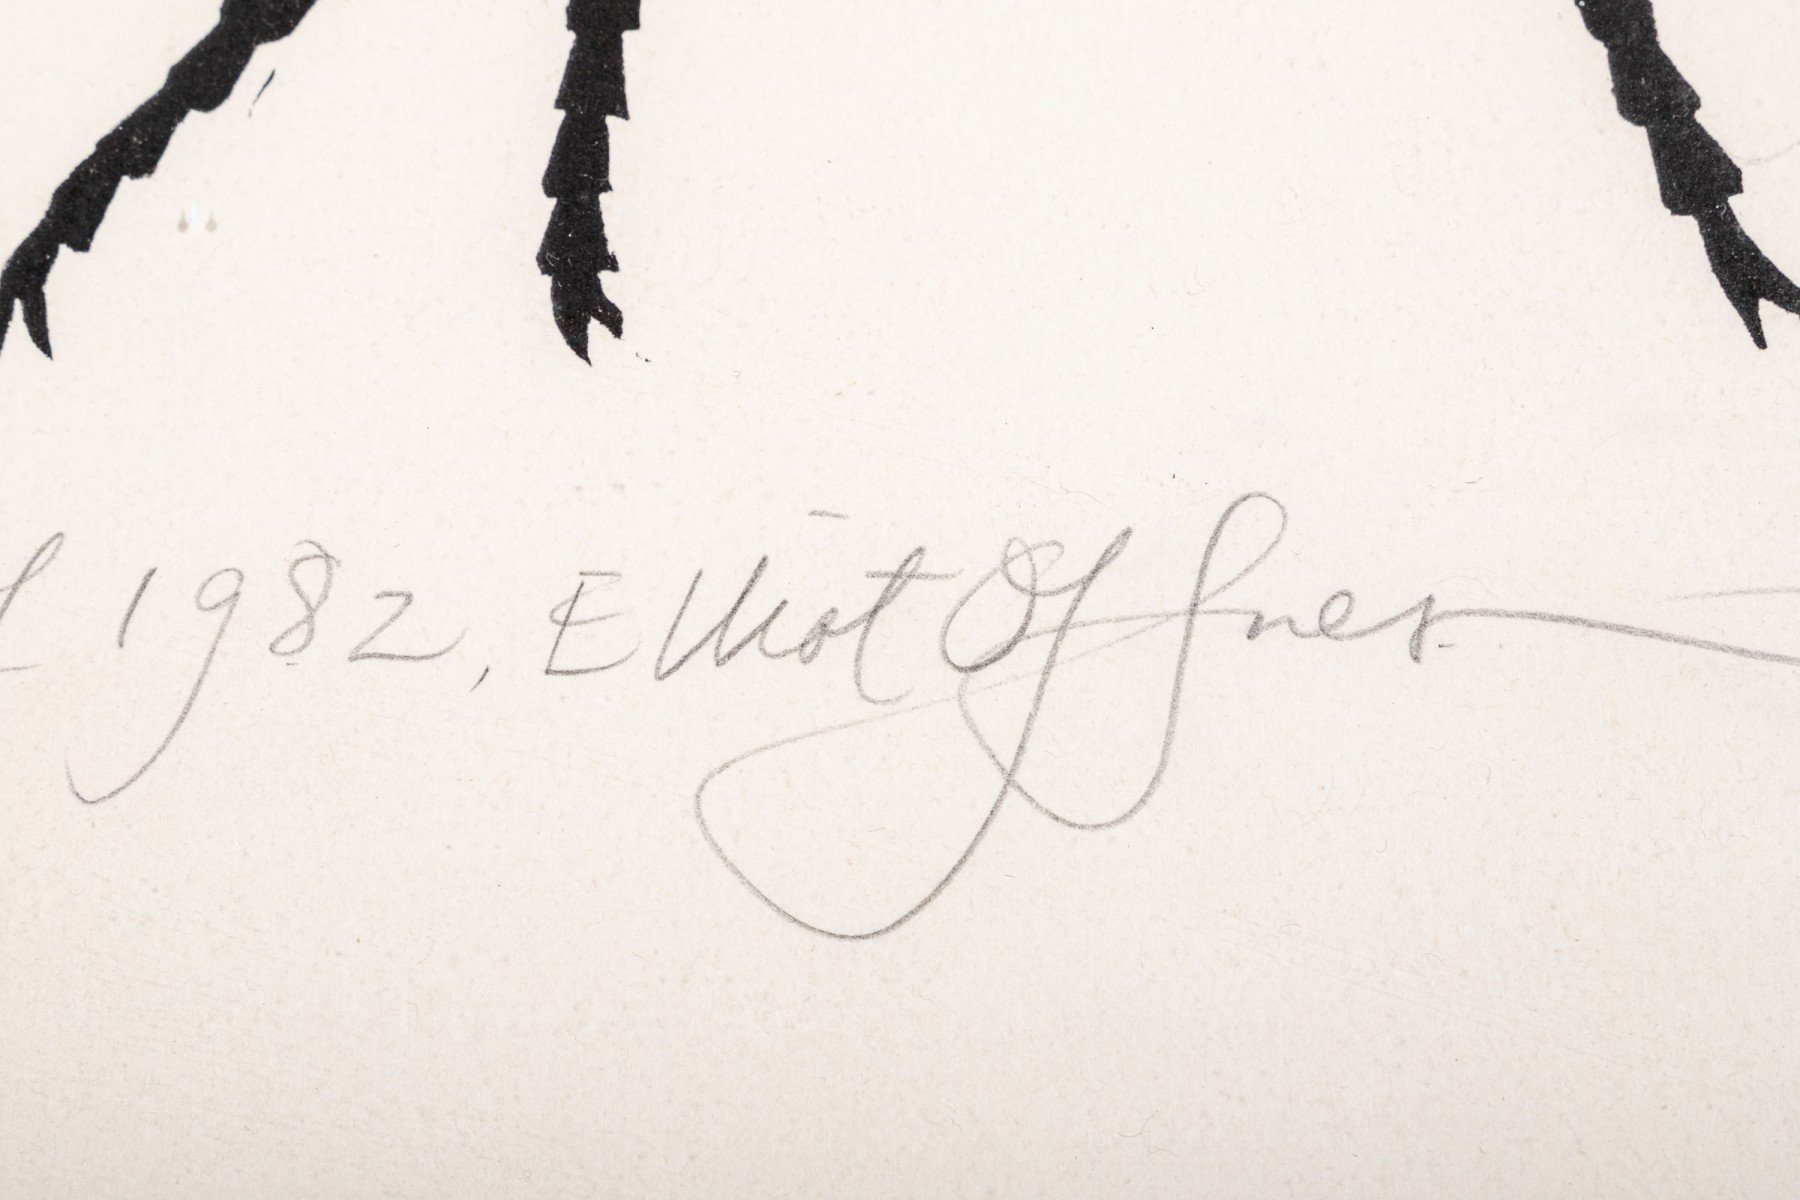 1982, Elliot Offner.